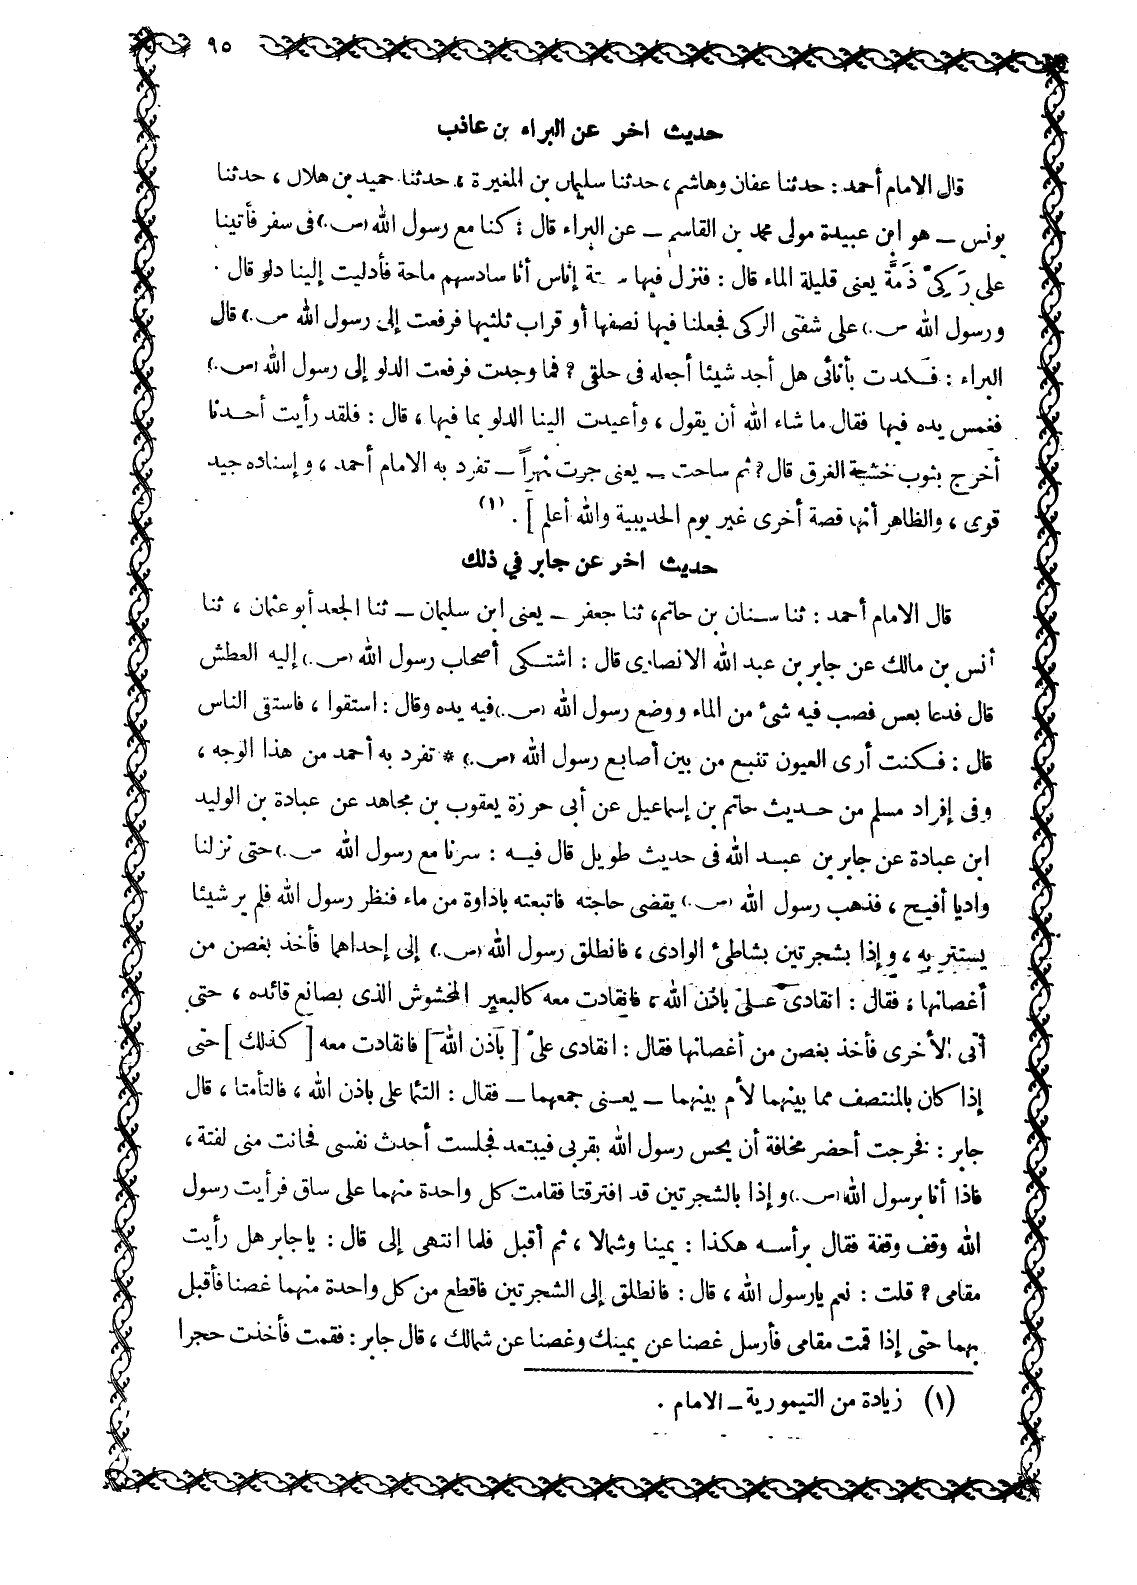 ٩٥
حديث اخر عن البراء بن عاذب
قال الامام أحمد : حدثنا عفان وهاشم ، حدثنا سليمان بن المغيرة ، حدثنا حميد بن هلال ، حدثنا
يونس ــ هو ابن عبيدة مولى محمد بن القاسم ــ عن البراء قال : كنا مع رسول الله (ص.) فى سفر فأتينا
على رَكىّ ذَمَّة يعنى قليلة الماء قال : فنزل فيها ستة إناس أنا سادسهم ماحة فأدليت إلينا دلو قال .
ورسول الله ص.) على شفتى الركى فجعلنا فيها نصفها أو قراب ثلثيها فرفعت إلى رسول الله ص.) قال
البراء : فكدت بأنائى هل أجد شيئا أجعله فى حلقى ؟ فما وجدت فرفعت الدلو إلى رسول الله (ص.)
فغمس يده فيها فقال ما شاء الله أن يقول ، وأعيدت الينا الدلو بما فيها ، قال : فلقد رأيت أحدنا
أخرج بثوب خشية الغرق قال ؟ ثم ساحت ــ يعنى جرت نهراً ــ تفرد به الامام أحمد ، وإسناده جيد
قوى ، والظاهر أنها قصة أخرى غير يوم الحديبية والله أعلم ] . (١)
حديث اخر عن جابر في ذلك
قال الامام أحمد : ثنا سنان بن حاتم ، ثنا جعفر ــ يعنى ابن سليمان ــ ثنا الجعد أبو عثمان ، ثنا
أنس بن مالك عن جابر بن عبد الله الانصارى قال : اشتكى أصحاب رسول الله (ص.) إليه العطش
قال فدعا بعس فصب فيه شئ من الماء ووضع رسول الله (ص.) فيه يده وقال : استقوا ، فاستقى الناس
قال : فكنت أرى العيون تنبع من بين أصابع رسول الله (ص.) * تفرد به أحمد من هذا الوجه ،
وفى إفراد مسلم من حديث حاتم بن إسماعيل عن أبى حرزة يعقوب بن مجاهد عن عبادة بن الوليد
ابن عبادة عن جابر بن عبد الله فى حديث طويل قال فيه : سرنا مع رسول الله ص.) حتى نزلنا
واديا أفيح ، فذهب رسول الله (ص.) يقضى حاجته فاتبعته باداوة من ماء فنظر رسول الله فلم ير شيئا
يستتر به ، وإذا بشجرتين بشاطئ الوادى ، فانطلق رسول الله (ص.) إلى إحداهما فأخذ بغصن من
أغصانها ، فقال : انقادى علىّ باذن الله ، فانقادت معه كالبعير المخشوش الذى يصانع قائده ، حتى
أتى الأخرى فأخذ بغصن من أغصانها فقال : انقادى علىّ [ بآذن الله ] فانقادت معه [ كذلك ] حتى
إذا كان بالمنتصف مما بينهما لأم بينهما ــ يعنى جمعهما ــ فقال : التئما على باذن الله ، فالتأمتا ، قال
جابر : فخرجت أحضر مخافة أن يحس رسول الله بقربى فيبتعد فجلست أحدث نفسى فحانت منى لفتة ،
فاذا أنا برسول الله (ص.) وإذا بالشجرتين قد افترقتا فقامت كل واحدة منهما على ساق فرأيت رسول
الله وقف وقفة فقال برأسه هكذا : يمينا وشمالا ، ثم أقبل فلما انتهى إلى قال : ياجابر هل رأيت
مقامى ؟ قلت : نعم يارسول الله ، قال : فانطلق إلى الشجرتين فاقطع من كل واحدة منهما غصنا فأقبل
بهما حتى إذا قمت مقامى فأرسل غصنا عن يمينك وغصنا عن شمالك ، قال جابر : فقمت فأخذت حجرا
(١) زيادة من التيمورية ــ الامام .